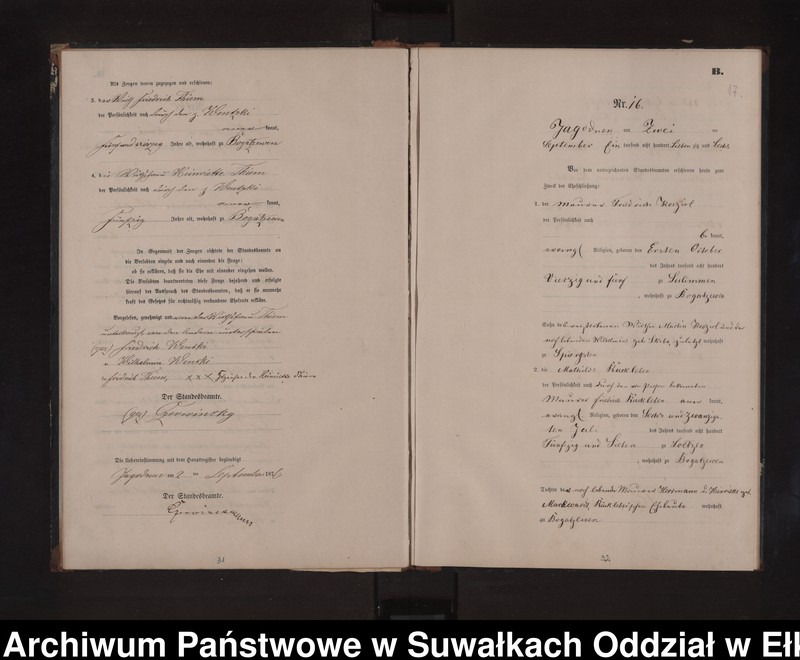 Als Zeugen waren zugezogen und erschienen:
3. der Wirth Friedrich Thiem
der Persönlichkeit nach durch den g. Wenski
kannt,
fünfundvierzig Jahre alt, wohnhaft zu Bogatzewen
4. die Henriette Thiem
der Persönlichkeit nach durch den g. Wenski
kannt,
fünfzig Jahre alt, wohnhaft zu Bogatzewen
In Gegenwart der Zeugen richtete der Standesbeamte an
die Verlobten einzeln und nach einander die Frage:
ob sie erklären, daß sie die Ehe mit einander eingehen wollen.
Die Verlobten beantworteten diese Frage bejahend und erfolgte
hierauf der Ausspruch des Standesbeamten, daß er sie nunmehr
kraft des Gesetzes für rechtmäßig verbundene Eheleute erkläre.
Vorgelesen, genehmigt und von der Thiem
unterkreuzt, von den anderen unterschrieben
(gez) Friedrich Wenski
" Wilhelmine Wenski
" Friedrich Thiem, x x x Henriette Thiem
Der Standesbeamte.
(gez) Czerwinsky
Die Uebereinstimmung mit dem Hauptregister beglaubigt
Jagodnen am 2 ten September 187
Der Standesbeamte.
31
B.
17.
Nr. 16.
Jagodnen am Zwei ten
September Ein tausend acht hundert sieben zig und sechs
Vor dem unterzeichneten Standesbeamten erschienen heute zum
Zweck der Eheschließung:
1. der Maurer Friedrich
der Persönlichkeit nach
be kannt,
evangl. Religion, geboren den Ersten October
des Jahres tausend acht hundert
Vierzig und fünf zu Sulimmen
, wohnhaft zu Bogatzewen
Sohn des verstorbenen Martin und der
noch lebenden geb. zuletzt wohnhaft
zu
2. die Mathilde Rückleben
der Persönlichkeit nach durch den bekannten
Maurer Friedrich Rückleben aner kannt,
evangl. Religion, geboren den Sechs und zwanzig
ten Juli des Jahres tausend acht hundert
Fünfzig und Sieben zu
, wohnhaft zu Bogatzewen
Tochter des noch lebenden Maurer Herrmann u. Henriette geb.
Markward, Rücklebenschen Eheleute wohnhaft
zu Bogatzewen
32
Archiwum Państwowe w Suwałkach Oddział w Ełk